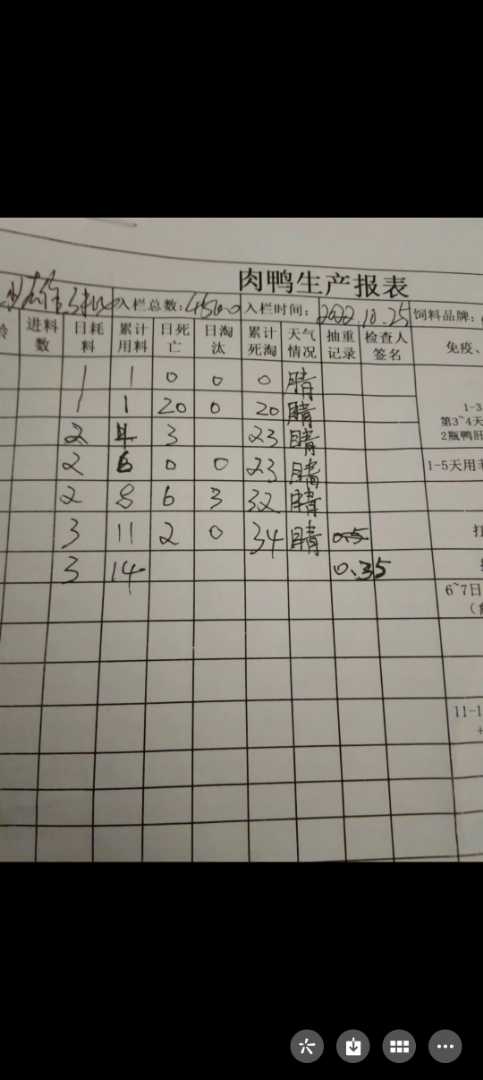 肉鸭生产报表
入栏总数: 4500 入栏时间: 2022.10.25 饲料品牌:
龄 进料数 日耗料 累计用料 日死亡 日淘汰 累计死淘 天气情况 抽重记录 检查人签名 免疫、
1 1 0 0 0 晴
1 1 20 0 20 晴 1-3
第3~4天
2 4 3 23 晴 2瓶鸭肝
2 6 0 0 23 晴 1-5天用
2 8 6 3 32 晴
3 11 2 0 34 晴 0.5
3 14 0.35
6~7日
11-1
+